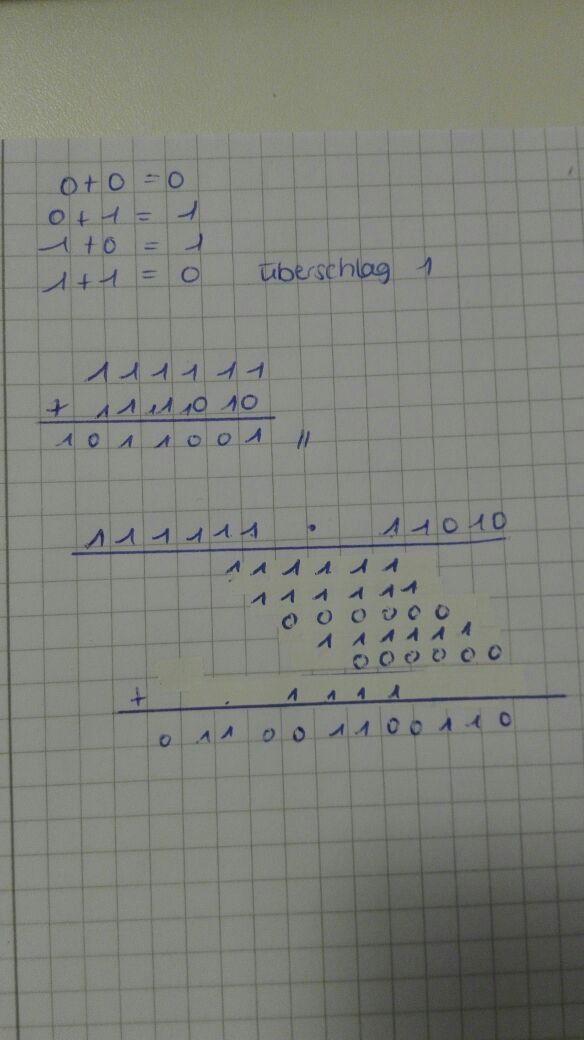 0+0 = 0
0+1 = 1
1+0 = 1
1+1 = 0 Überschlag 1
111111
+ 1111010
1011001 //
111111 · 11010
111111
111111
000000
111111
000000
+ . 1111
011001100110